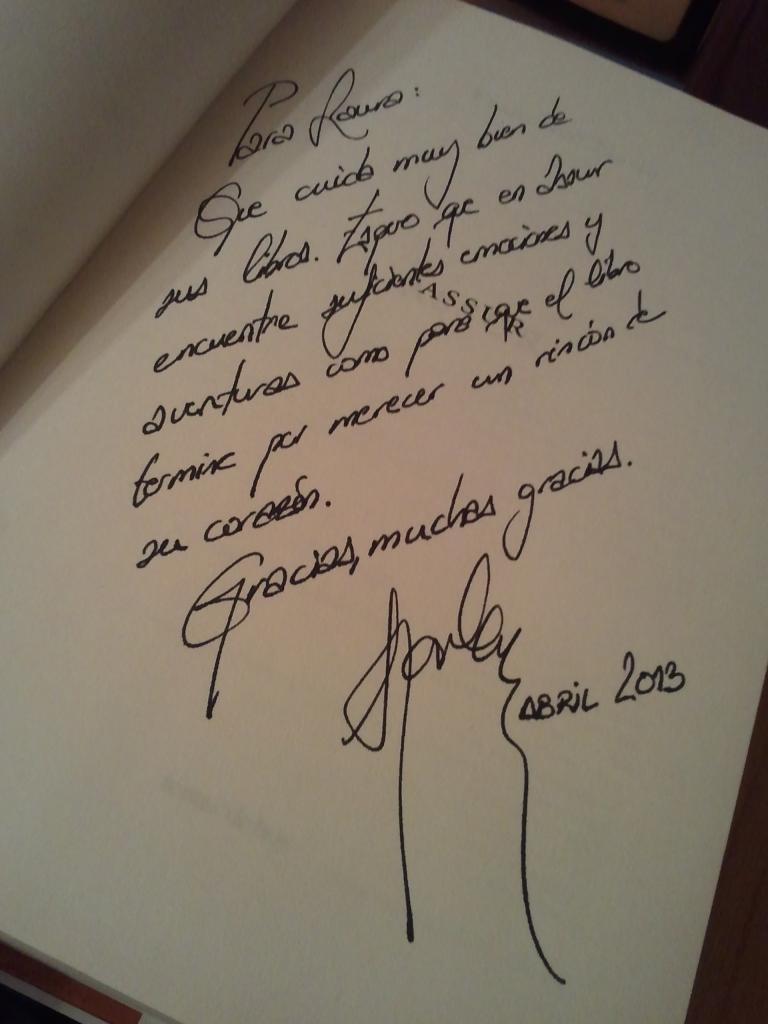 Para Laura:
Que cuida muy bien de
sus libros. Espero que en
encuentre suficientes emociones y
aventuras como para que el libro
termine por merecer un rincón de
su corazón.
Gracias, muchas gracias.
ABRIL 2013